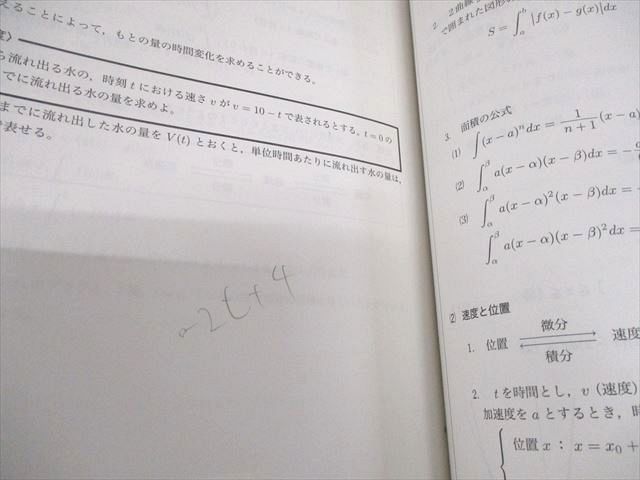 えることによって，もとの量の時間変化を求めることができる。
ら流れ出る水の，時刻 t における速さ v が v = 10 − t で表されるとする。t = 0 の
でに流れ出る水の量を求めよ。
までに流れ出した水の量を V(t) とおくと，単位時間あたりに流れ出す水の量は，
表せる。
-2t+4
2. 2曲線
で囲まれた図形
S = ∫_a^b |f(x) − g(x)|dx
3. 面積の公式
(1) ∫(x − a)^n dx = 1/(n+1) (x − a)
(2) ∫_α^β a(x − α)(x − β)dx = −
(3) ∫_α^β a(x − α)^2(x − β)dx =
∫_α^β a(x − α)(x − β)^2 dx =
(2) 速度と位置
1. 位置 微分 積分 速度
2. t を時間とし，v（速度）
加速度を a とするとき，時
位置 x : x = x_0 +